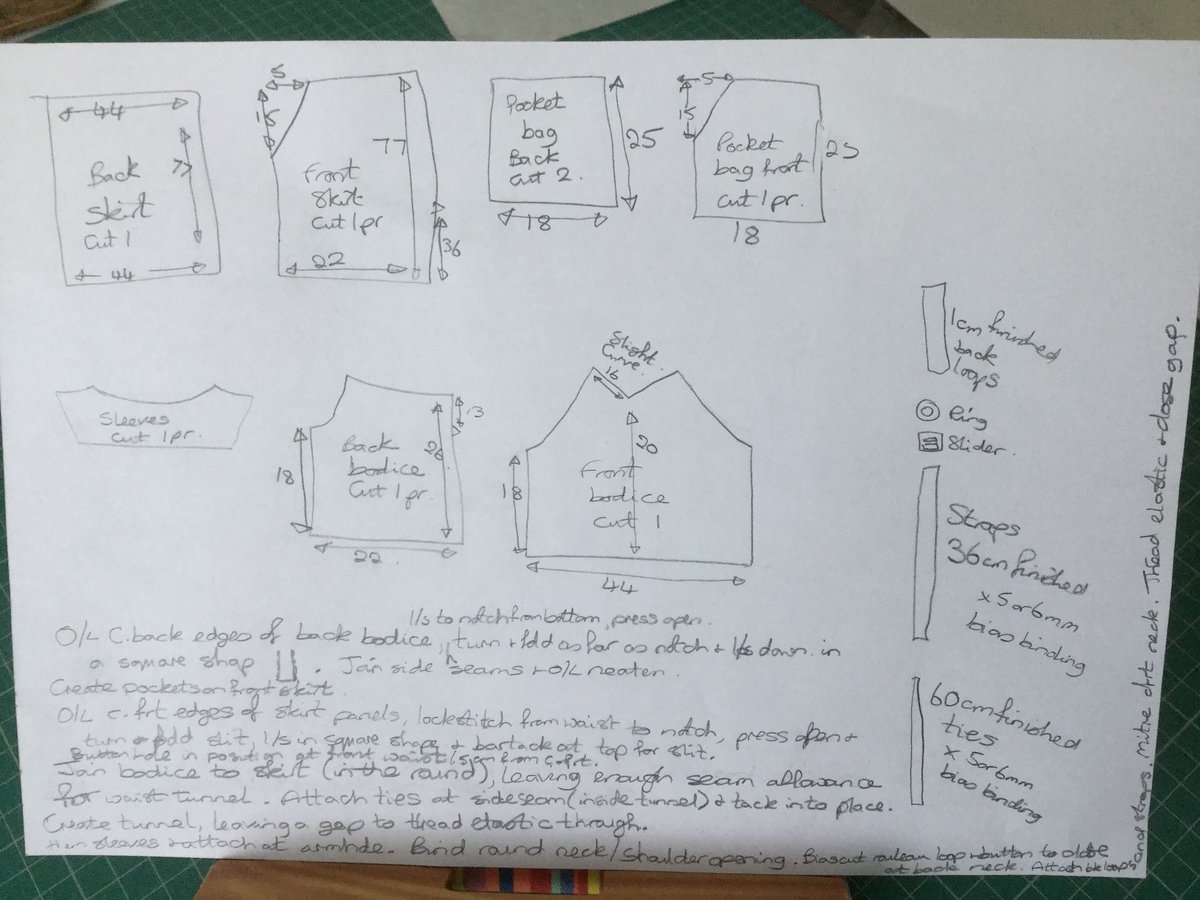 44
77
Back
Skirt
Cut 1
44
5
15
77
Front
Skirt
Cut 1 pr
22
36
Pocket
bag
Back
Cut 2.
25
18
5
15
Pocket
bag front
cut 1 pr.
25
18
Sleeves
cut 1 pr.
13
26
18
Back
bodice
Cut 1 pr.
22
Slight
Curve.
16
20
18
Front
bodice
Cut 1
44
1cm finished
back
loops
Ring
Slider.
Straps
36cm finished
x 5 or 6mm
bias binding
60cm finished
ties
x 5 or 6mm
bias binding
l/s to notch from bottom, press open.
O/L C. back edges of back bodice, turn + fold as far as notch + l/s down in
a square shap . Join side seams + O/L neaten.
Create pockets on front skirt.
O/L c. frt edges of skirt panels, lockstitch from waist to notch, press open +
turn + fold slit, l/s in square shape + bartack at top for slit.
Button hole in position at front waist from c. frt.
Join bodice to skirt (in the round), leaving enough seam allowance
for waist tunnel. Attach ties at side seam (inside tunnel) + tack into place.
Create tunnel, leaving a gap to thread elastic through.
Hem sleeves + attach at armhole. Bind round neck/shoulder opening. Bias cut rouleau loop + button to
at back neck. Attach bk loops
straps. Mitre frt neck. Thread elastic + close gap.